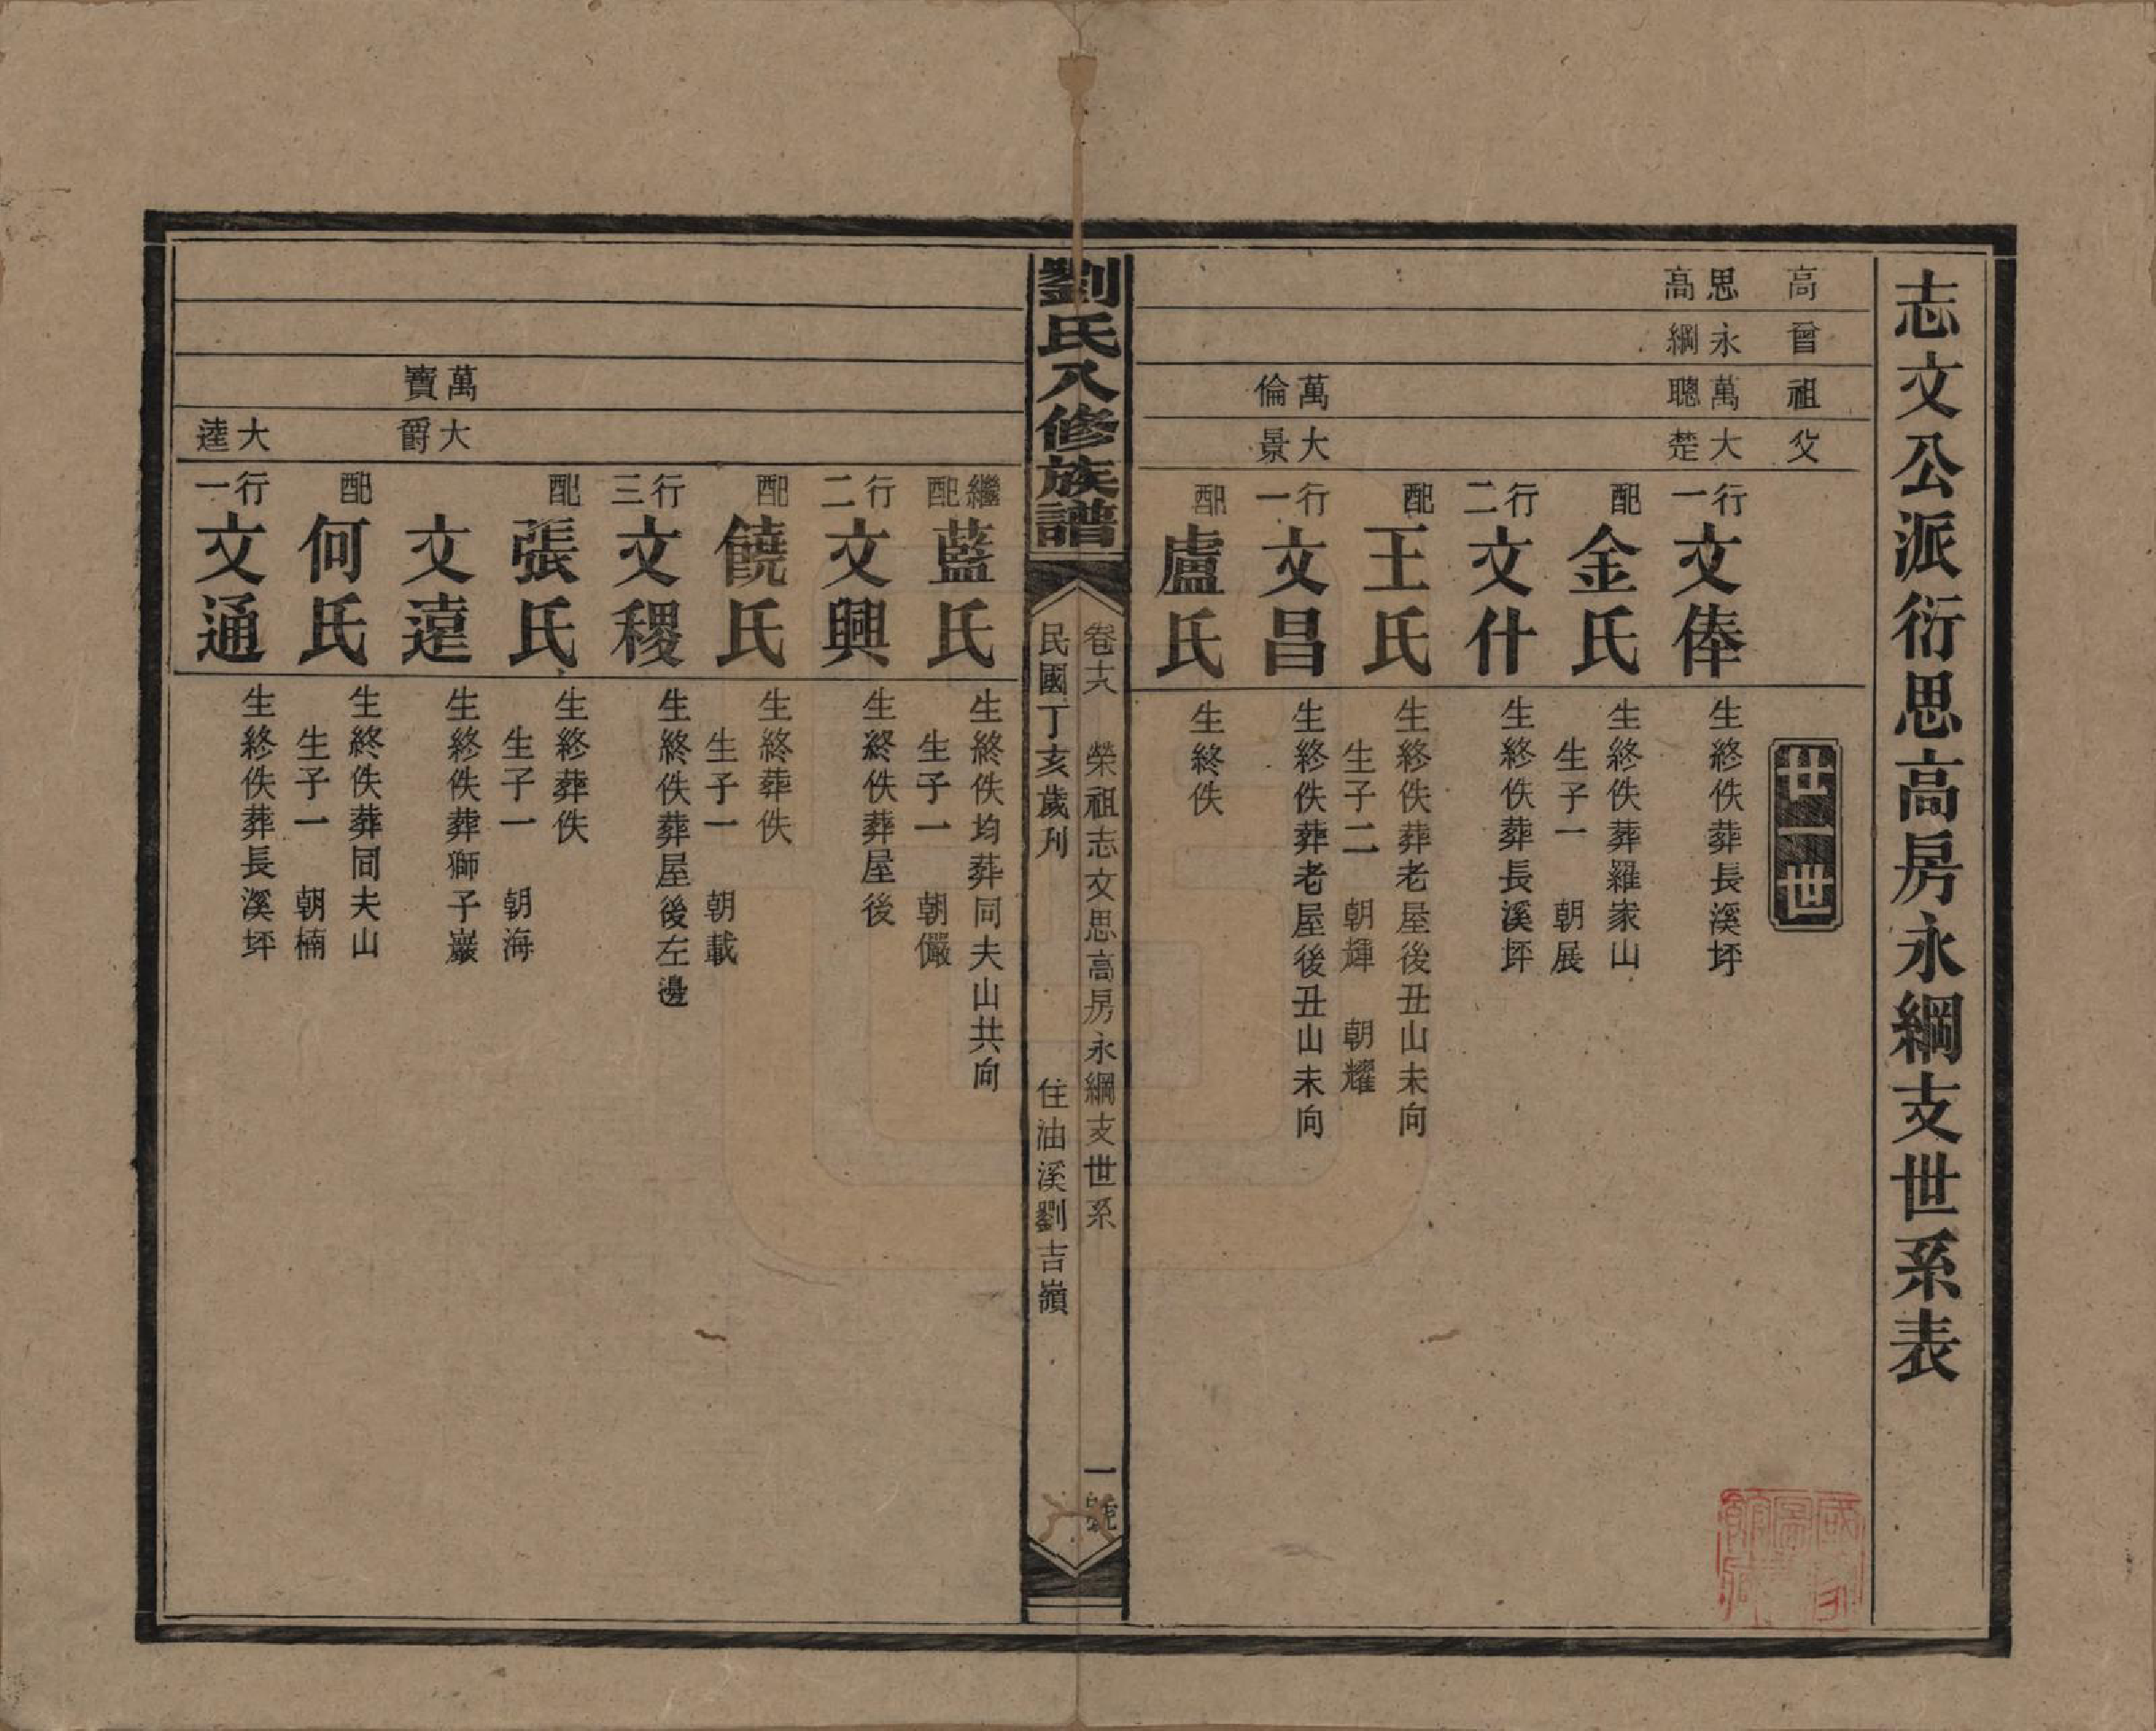 志文公派衍思高房永綱支世系表
高 曾 祖 父
廿一世
思高 永綱 萬聰 大楚
行一 文俸 生終佚葬長溪坪
配 金氏 生終佚葬羅家山
生子一 朝展
行二 文什 生終佚葬長溪坪
配 王氏 生終佚葬老屋後丑山未向
生子二 朝輝 朝耀
萬倫 大景
行一 文昌 生終佚葬老屋後丑山未向
配 盧氏 生終佚
劉氏八修族譜
卷十六 榮祖志文思高房永綱支世系 一號
民國丁亥歲刋 住油溪劉吉嶺
繼配 藍氏 生終佚均葬同夫山共向
生子一 朝儼
行二 文興 生終佚葬屋後
配 饒氏 生終葬佚
生子一 朝載
行三 文稷 生終佚葬屋後左邊
配 張氏 生終葬佚
生子一 朝海
萬寶 大爵
文遠 生終佚葬獅子巖
配 何氏 生終佚葬同夫山
生子一 朝楠
大逵
行一 文通 生終佚葬長溪坪